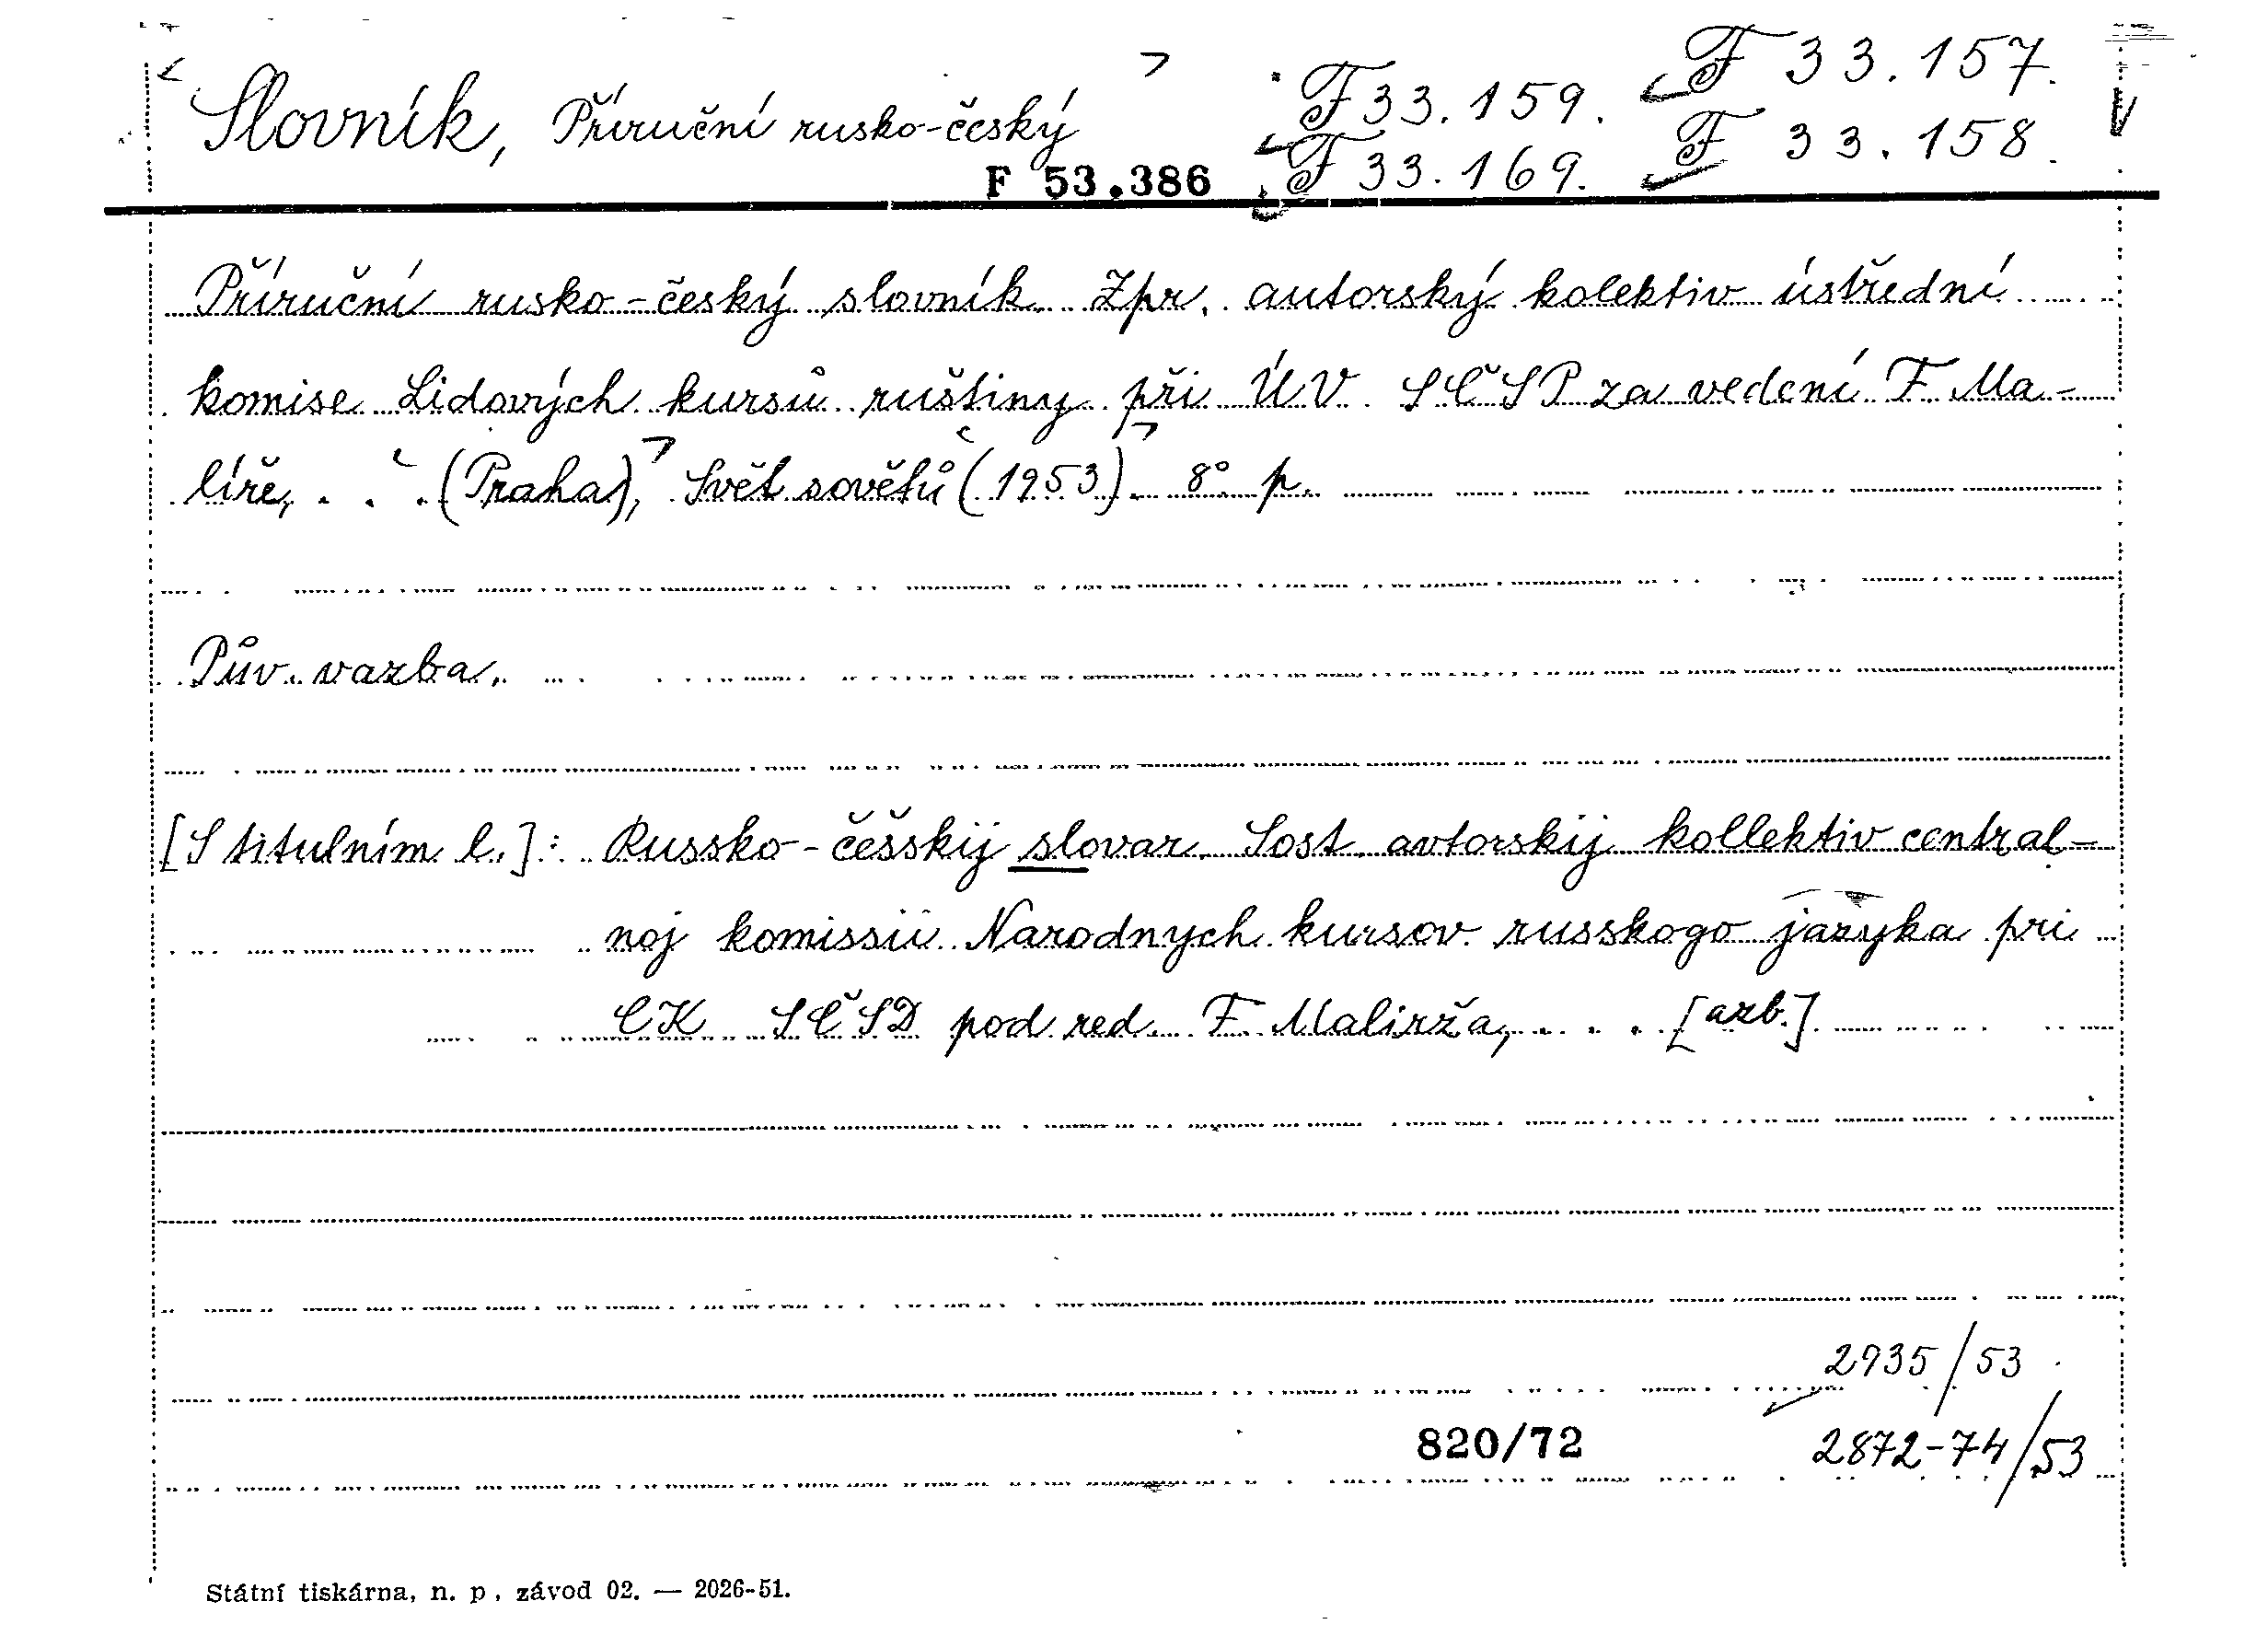 Slovník, Příruční rusko-český F 33.159. F 33.157.
F 53.386 F 33.169. F 33.158.
Příruční rusko-český slovník. Zpr. autorský kolektiv ústřední
komise Lidových kursů ruštiny při ÚV SČSP za vedení F. Ma-
líře, . . . (Praha), Svět sovětů (1953). 8° p.
Pův. vazba.
[S titulním l.]: Russko-češskij slovar. Sost. avtorskij kollektiv central-
noj komissii Narodnych kursov russkogo jazyka pri
CK SČSD pod red. F. Malirža, . . . [azb.]
2935/53
820/72 2872-74/53
Státní tiskárna, n. p., závod 02. — 2026-51.